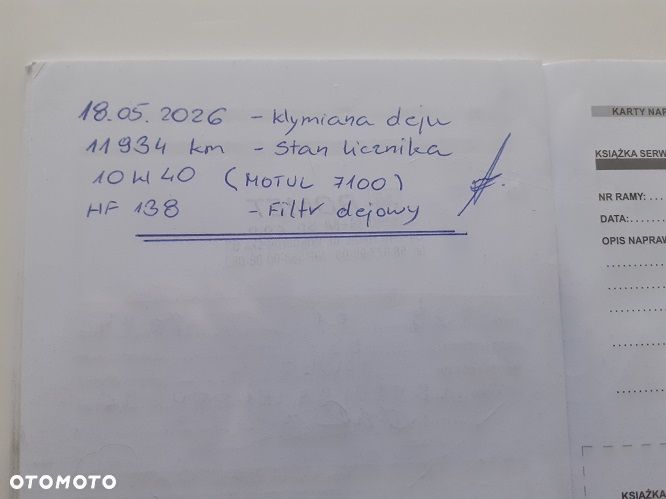 18.05.2026 - Wymiana oleju
11934 km - Stan licznika
10W40 (MOTUL 7100)
HF 138 - Filtr olejowy
KARTY NAP
KSIĄŻKA SERW
NR RAMY:
DATA:
OPIS NAPRAW
KSIĄŻK
OTOMOTO